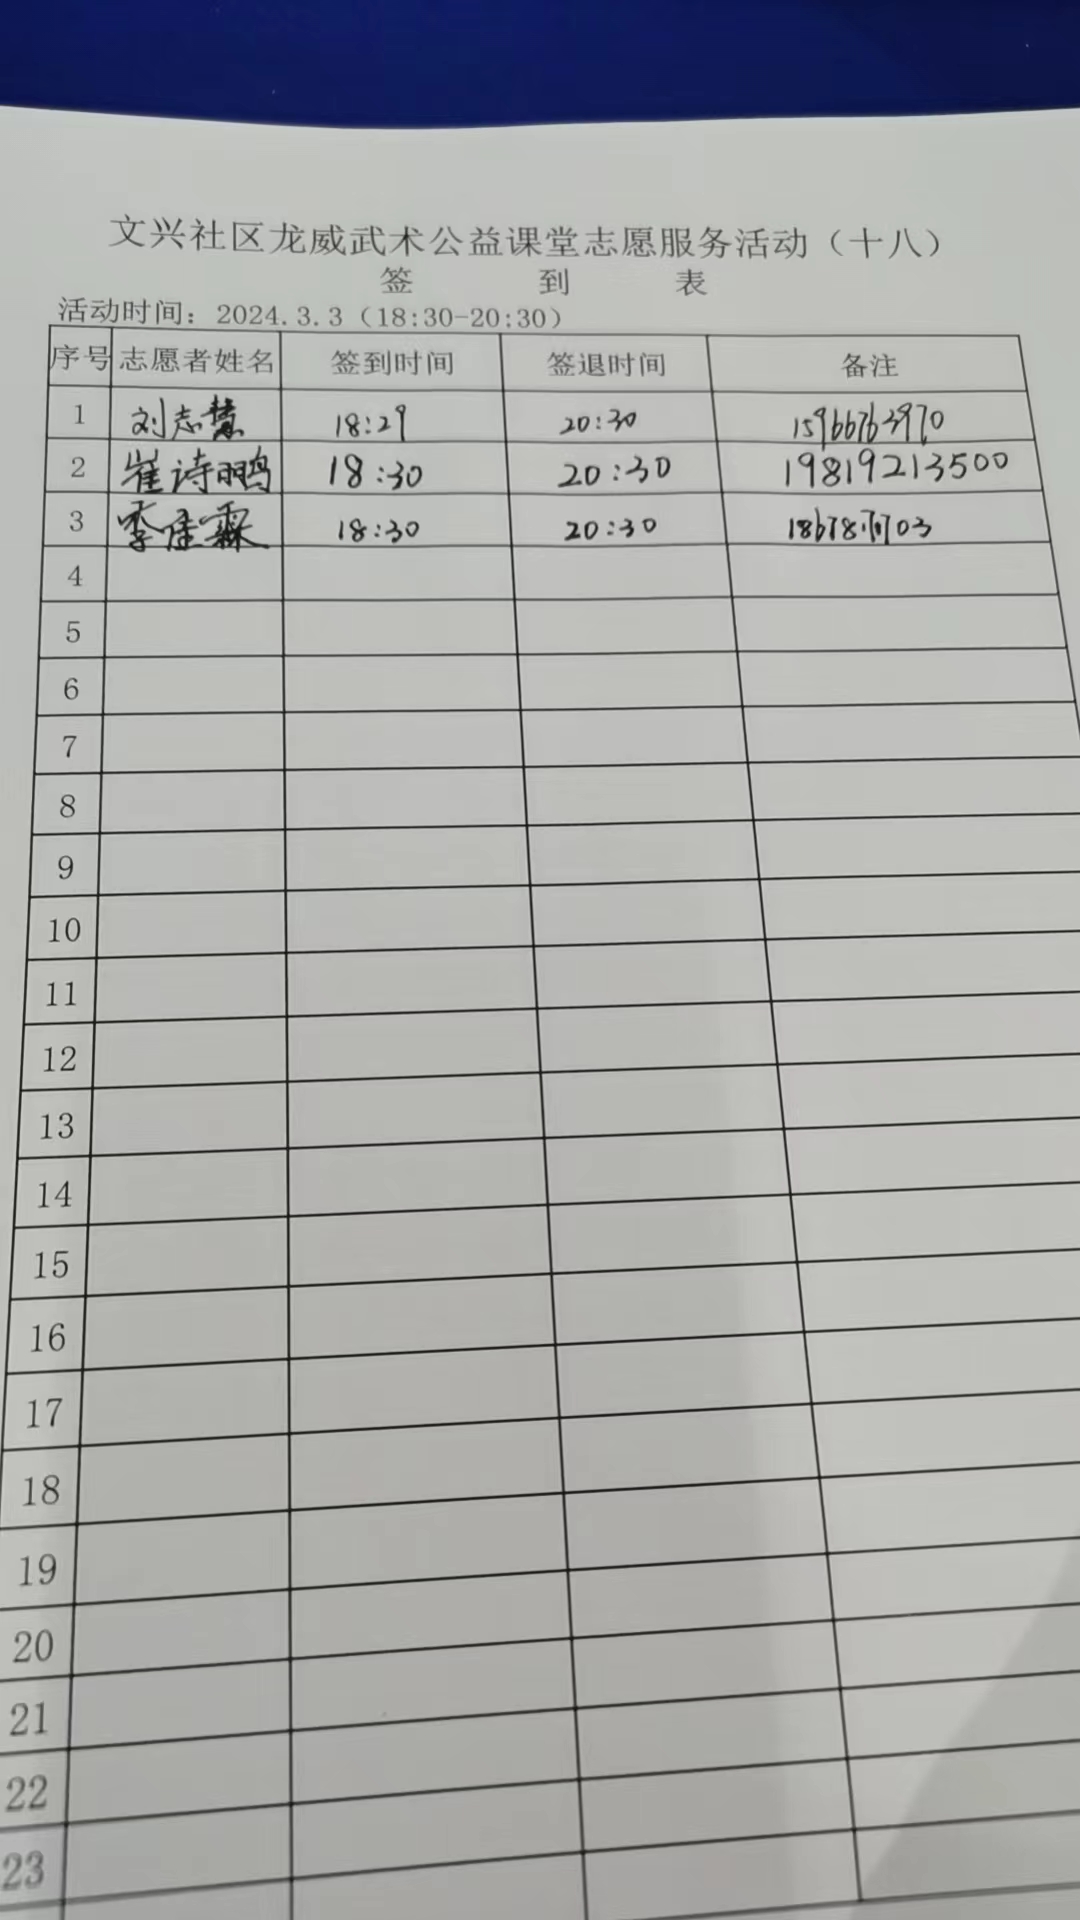 文兴社区龙威武术公益课堂志愿服务活动（十八）
签 到 表
活动时间：2024.3.3（18:30-20:30）
序号 志愿者姓名 签到时间 签退时间 备注
1 刘志慧 18:29 20:30 15966763970
2 崔诗鹏 18:30 20:30 19819213500
3 李佳霖 18:30 20:30
4
5
6
7
8
9
10
11
12
13
14
15
16
17
18
19
20
21
22
23